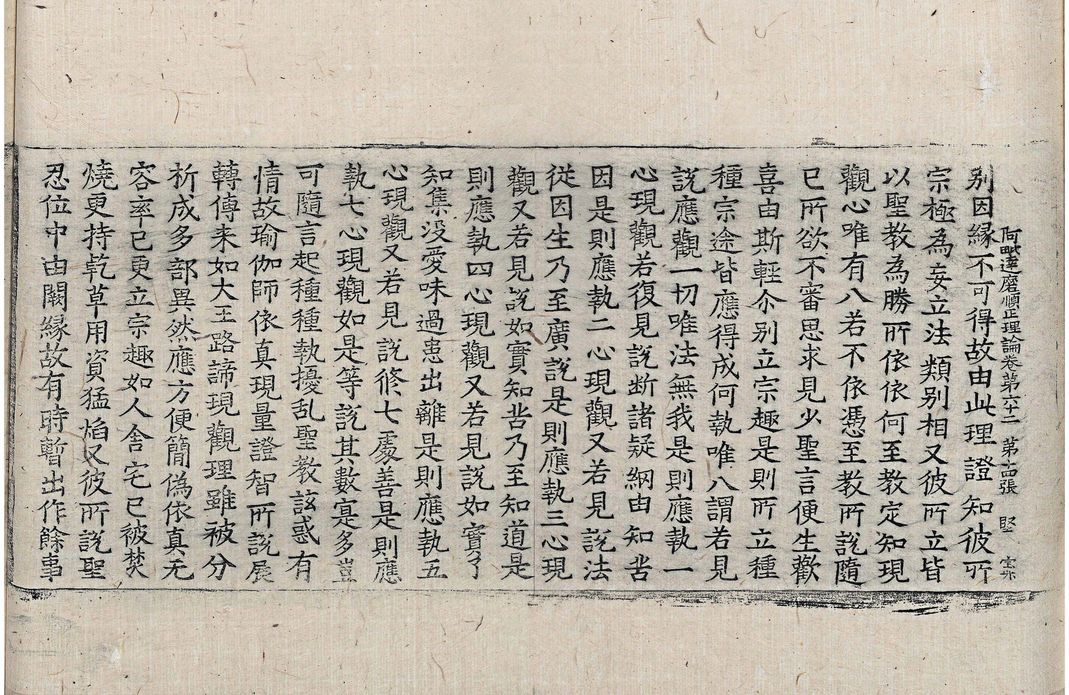 阿毗達磨順正理論卷第六十二 第十四張 堅
别因緣不可得故由此理證知彼所
宗極為妄立法類别相又彼所立皆
以聖教為勝所依依何至教定知現
觀心唯有八若不依憑至教所說隨
已所欲不審思求見少聖言便生歡
喜由斯輕尒别立宗趣是則所立種
種宗途皆應得成何執唯八謂若見
說應觀一切唯法無我是則應執一
心現觀若復見說断諸疑網由知苦
因是則應執二心現觀又若見說法
從因生乃至廣說是則應執三心現
觀又若見說如實知苦乃至知道是
則應執四心現觀又若見說如實了
知集没愛味過患出離是則應執五
心現觀又若見說修七處善是則應
執七心現觀如是等說其數寔多豈
可隨言起種種執擾乱聖教該惑有
情故瑜伽師依真現量證智所說展
轉傳来如大王路諦現觀理雖被分
析成多部異然應方便簡偽依真无
容率已更立宗趣如人舎宅已被焚
燒更持乾草用資猛焰又彼所說聖
忍位中由闕緣故有時暫出作餘事